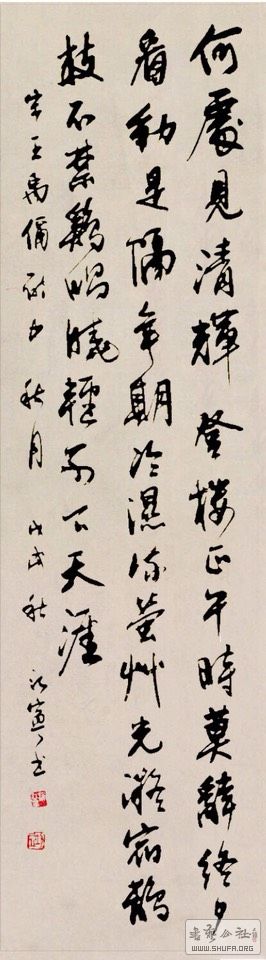 何處見清輝登樓正午時莫辭終夕
看動是隔年期冷濕流螢艸光凝宿鶴
枝不禁鷄唱曉輕别下天涯
宋王禹偁詩中秋月 戊戌秋 书
公社
WWW.SHUFA.ORG